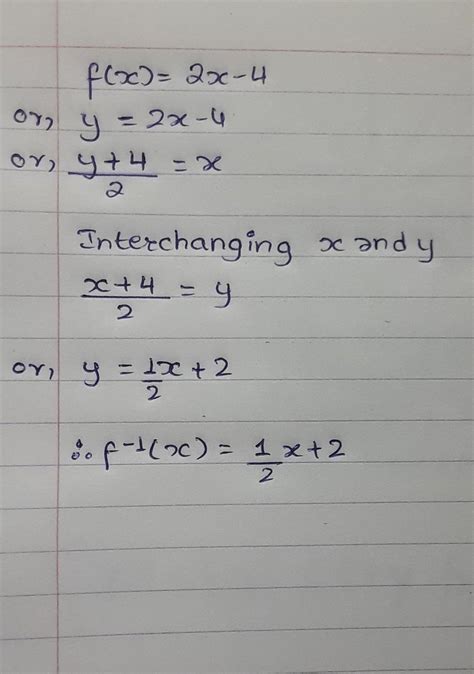 f(x) = 2x-4
or, y = 2x-4
or, y+4/2 = x
Interchanging x and y
x+4/2 = y
or, y = 1x/2 + 2
∴ f⁻¹(x) = 1/2 x+2